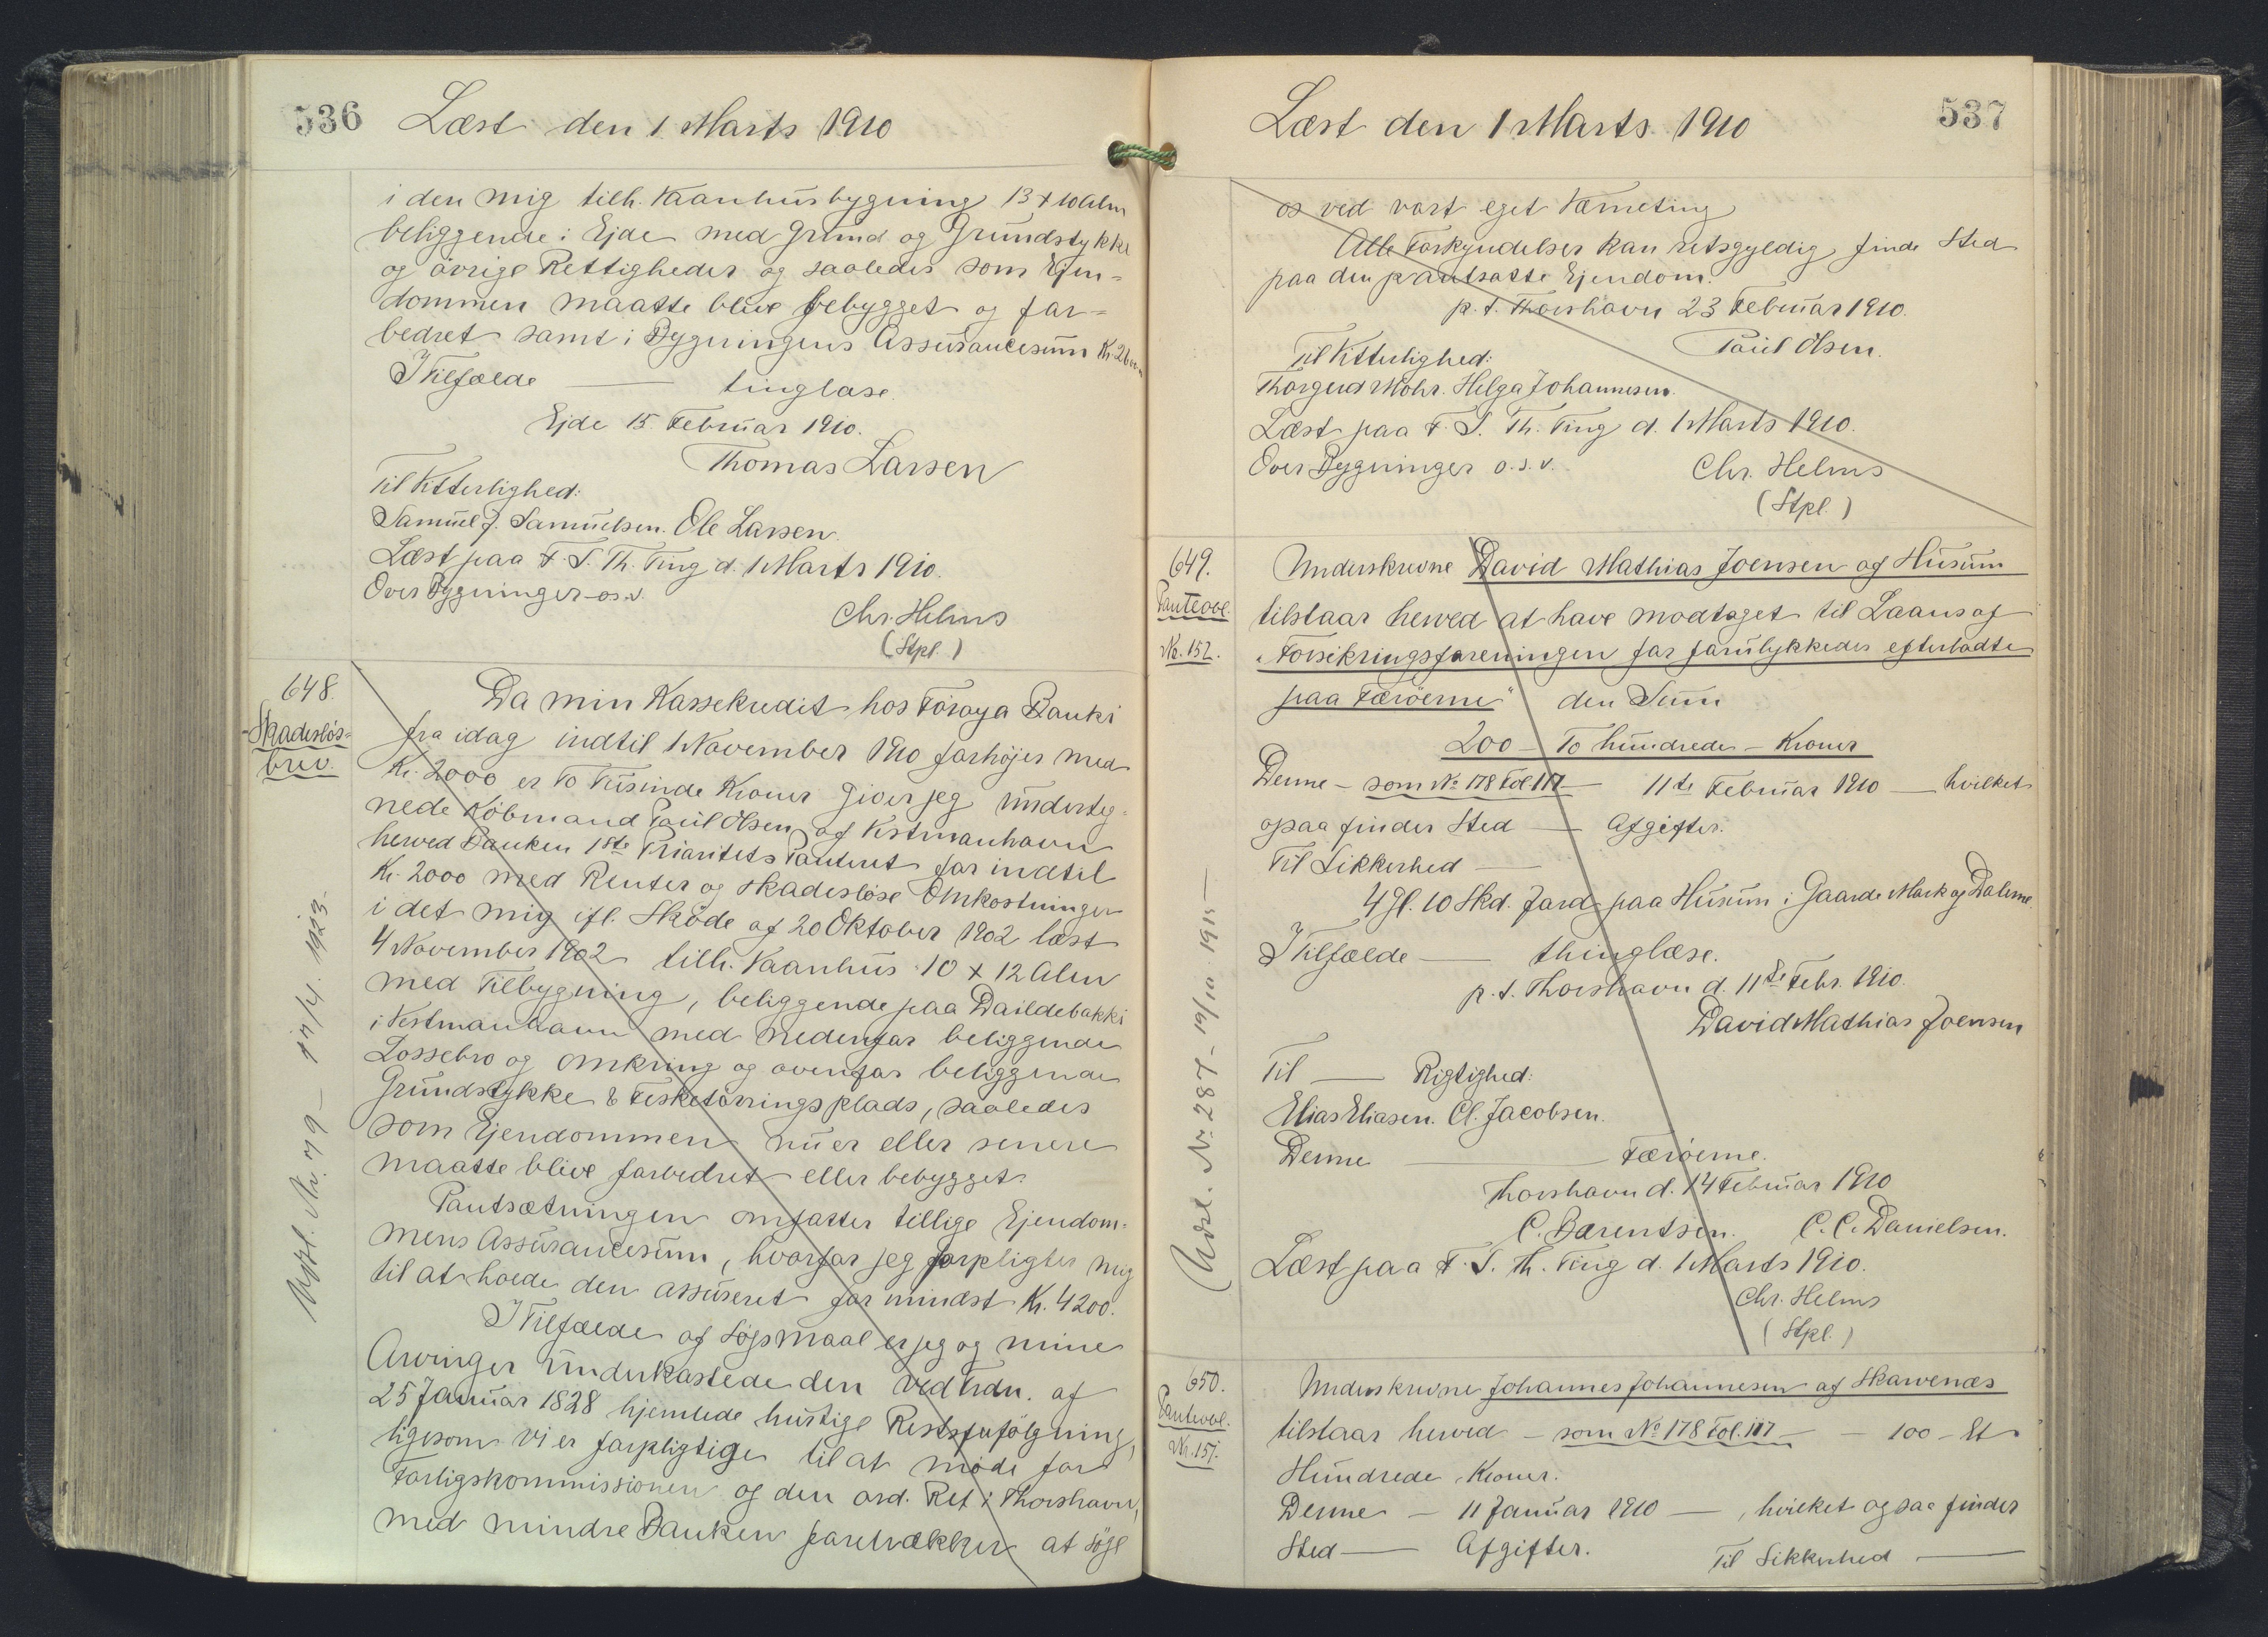 536 Læst den 1 Marts 1910
i den mig tilh. Vaanhusbygning 13 x 10 Alm
beliggende i Ejde med Grund og Grundstykke
og øvrige Rettigheder og saaledes som Ejen-
dommen maatte blive bebygget og for-
bedret samt i Bygningens Assurancesum Kr.
I Tilfælde — tinglæse.
Ejde 15 Februar 1910.
Thomas Larsen
Til Vitterlighed:
Samuel J. Samuelsen. Ole Larsen.
Læst paa F. S. Th. Ting d. 1 Marts 1910.
Over Bygninger o.s.v.
Chr. Helms
(Stpl.)
648.
Skadesløs-
brev.
Da min Kassekredit hos Føroya Banki
fra idag indtil 1 November 1910 forhøjes med
Kr. 2000 er To Tusinde Kroner giver jeg underteg-
nede Købmand Poul Olsen af Vestmanhavn
herved Banken 1ste Prioritets Panteret for indtil
Kr. 2000 med Renter og skadesløse Omkostninger
i det mig ifl. Skøde af 20 Oktober 1902 læst
4 November 1902 tilh. Vaanhus 10 x 12 Alen
med Tilbygning, beliggende paa Daildebakki
i Vestmanhavn med nedenfor beliggende
Lossebro og omkring og ovenfor beliggende
Grundstykke & Fisketørringsplads, saaledes
som Ejendommen nu er eller senere
maatte blive forbedret eller bebygget.
Pantsætningen omfatter tillige Ejendom-
mens Assurancesum, hvorfor jeg forpligter mig
til at holde den assureret for mindst Kr. 4200.
I Tilfælde af Søgsmaal er jeg og mine
Arvinger underkastede den ved Frdn. af
25 Januar 1828 hjemlede hurtige Retsforfølgning,
ligesom vi er forpligtige til at møde for
Forligskommissionen og den ord. Ret i Thorshavn,
med mindre Banken foretrækker at søge
Udsl. Nr. 79 – 17/4. 1923.
Læst den 1 Marts 1910 537
os ved vort eget Værneting
Alle Forkyndelser kan retsgyldig finde Sted
paa den pantsatte Ejendom.
p. t. Thorshavn 23 Februar 1910.
Poul Olsen.
Til Vitterlighed:
Thorgerd Mohr. Helga Johannesen.
Læst paa F. S. Th. Ting d. 1 Marts 1910.
Over Bygninger o.s.v.
Chr. Helms
(Stpl.)
649.
Panteobl.
Nr. 152.
Underskrevne David Mathias Joensen af Husum
tilstaar herved at have modtaget til Laans af
"Forsikringsforeningen for forulykkedes efterladte
paa Færøerne" den Sum
200 – To hundrede – Kroner
Denne – som No 178 Fol. 117 — 11te Februar 1910 — hvilket
ogsaa finder Sted — Afgifter.
Til Sikkerhed —
4 Gl. 10 Skd. Jord paa Husum i Gaarde Mark og Dalerne.
I Tilfælde — thinglæse.
p. t. Thorshavn d. 11te Febr. 1910.
David Mathias Joensen
Til — Rigtighed:
Elias Eliasen. Cl. Jacobsen.
Denne — Færøerne.
Thorshavn d. 14 Februar 1910
C. Bærentsen. C. C. Danielsen.
Læst paa F. S. Th. Ting d. 1 Marts 1910.
Chr. Helms
(Stpl.)
Udsl. Nr. 287 – 19/10 1915 –
650.
Panteobl.
Underskrevne Johannes Johannesen af Skarvenæs
tilstaar herved – som No 178 Fol. 117 – – 100 – Et
Hundrede Kroner.
Denne – 11 Januar 1910 –, hvilket ogsaa finder
Sted — Afgifter. Til Sikkerhed —